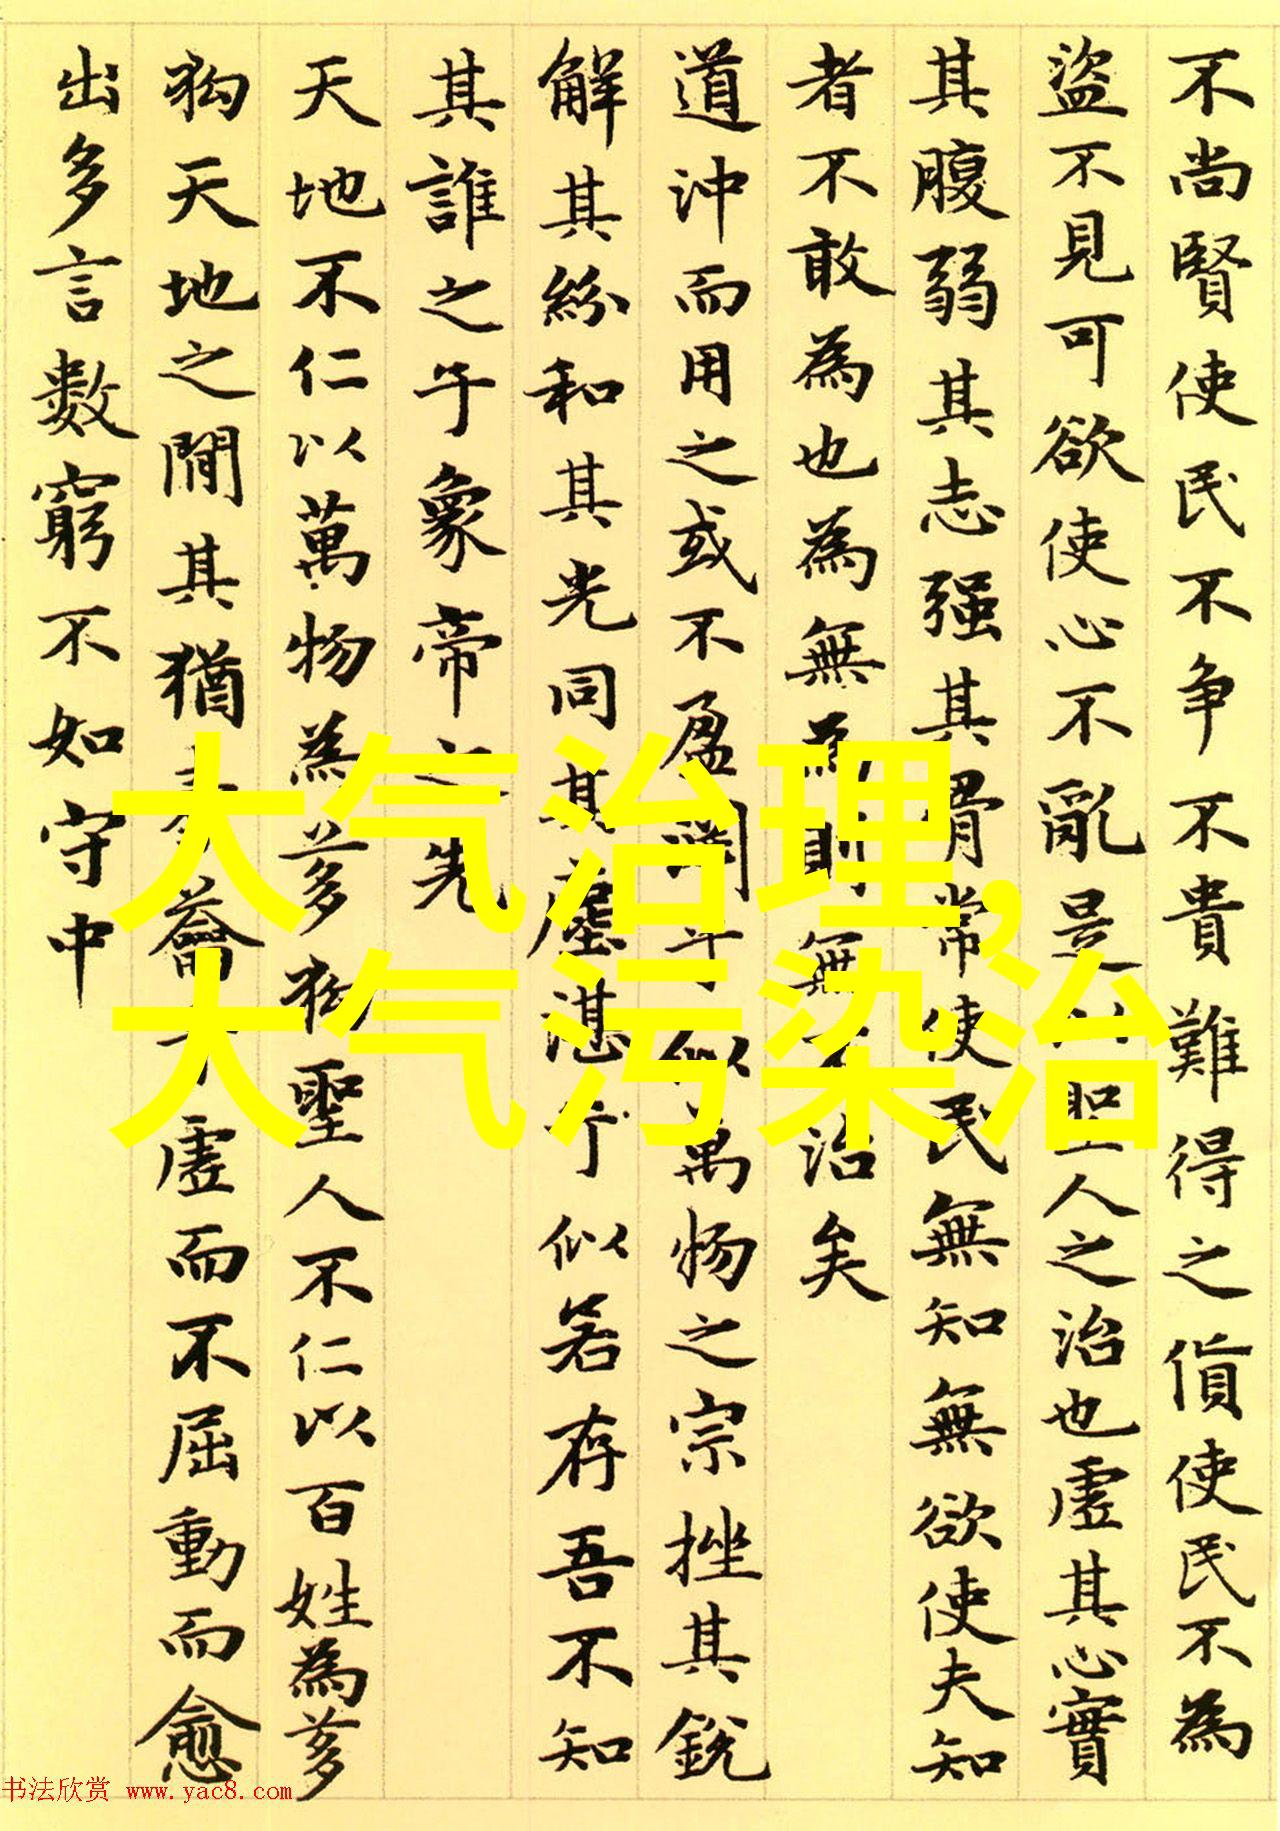 不尚賢使民不争不貴難得之貨使民不為
盜不見可欲使心不亂是以聖人之治也虛其心實
其腹弱其志强其骨常使民無知無欲使夫知
者不敢為也為無為則無不治矣
道沖而用之或不盈淵乎似萬物之宗挫其銳
解其紛和其光同其塵湛乎似若存吾不知
其誰之子象帝之先
天地不仁以萬物為芻狗聖人不仁以百姓為芻
狗天地之間其猶橐籥乎虛而不屈動而愈
出多言數窮不如守中
大气治理,
大气污染治
书法欣赏 www.yac8.com